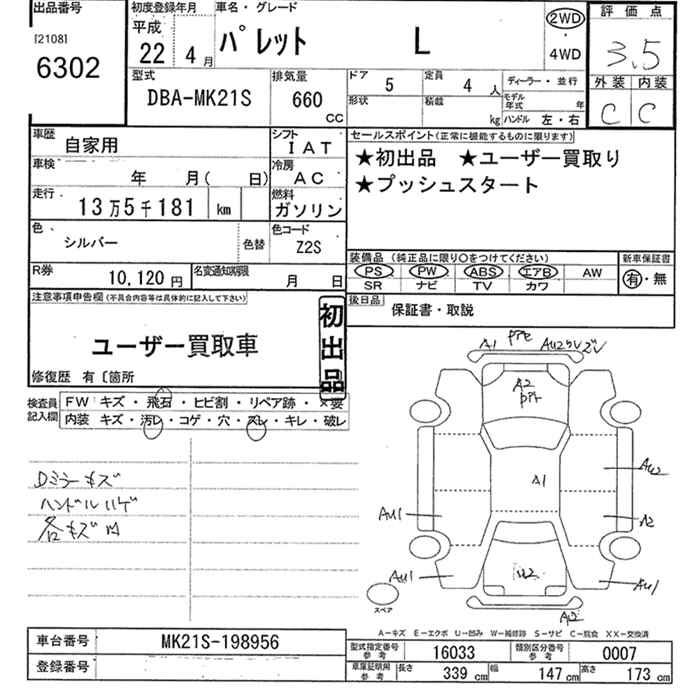 出品番号 初度登録年月 車名・グレード 評価点
[2108] 平成
6302 22年 4月 パレット L 2WD・4WD 3.5
型式 排気量 ドア 定員 ディーラー・並行 外装 内装
DBA-MK21S 660 CC 5 4人 モデル年式 年 C C
形状 積載 kg ハンドル 左・右
車歴 自家用 シフト IAT セールスポイント(正常に機能するものに限ります)
車検 年 月( 日) 冷房 AC ★初出品 ★ユーザー買取り
走行 13万5千181 km 燃料 ガソリン ★プッシュスタート
色 シルバー 色替 色コード Z2S
装備品(純正品に限り○をつけてください) 新車保証書
PS PW ABS エアB AW 有・無
SR ナビ TV カワ
R券 10,120円 名変通知期限 月 日
注意事項申告欄(不具合内容等は具体的に記入して下さい) 後日品 保証書・取説
ユーザー買取車 初出品
修復歴 有〔箇所
検査員記入欄 FW キズ・飛石・ヒビ割・リペア跡・×要
内装 キズ・汚レ・コゲ・穴・スレ・キレ・破レ
Dミラーキズ
ハンドルハゲ
各キズ凹
A1
A2
A1
AU2
AU1 A2
AU1 AU1
スペア A2
A-キズ E-エクボ U-凹み W-補修跡 S-サビ C-腐食 XX-交換済
車台番号 MK21S-198956 型式指定番号 参考 16033 類別区分番号 参考 0007
登録番号 車庫証明用 参考 長さ 339 cm 幅 147 cm 高さ 173 cm